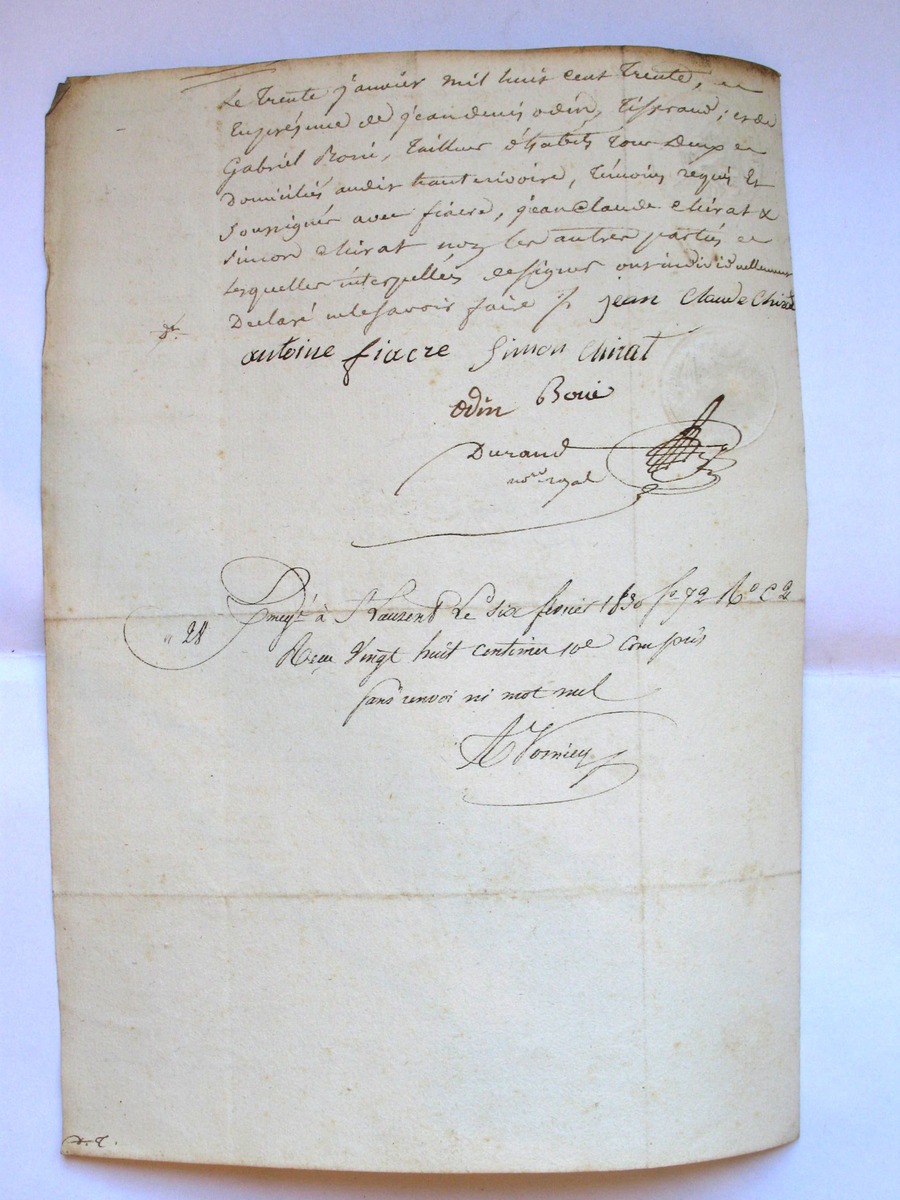 Le Trente janvier mil huit cent Trente, en
En présence de jean denis odin, Tisserand, et de
Gabriel Boué, Tailleur d'habits Tous Deux
Domiciliés audit hauterivoire, Témoins requis Et
Soussignés avec fiacre, jean Claude Chirat &
Simon Chirat non les autres parties
Lesquelles interpellées de signer ont individuellement
Declaré ne le savoir faire jean Claude Chirat
antoine fiacre Simon Chirat
odin Boué
Durand
nore royal
Enregté à St Laurent Le Six fevrier 1830 fo 72 Ro C 2
" 28 Reçu Vingt huit centimes 10e compris
sans renvoi ni mot nul